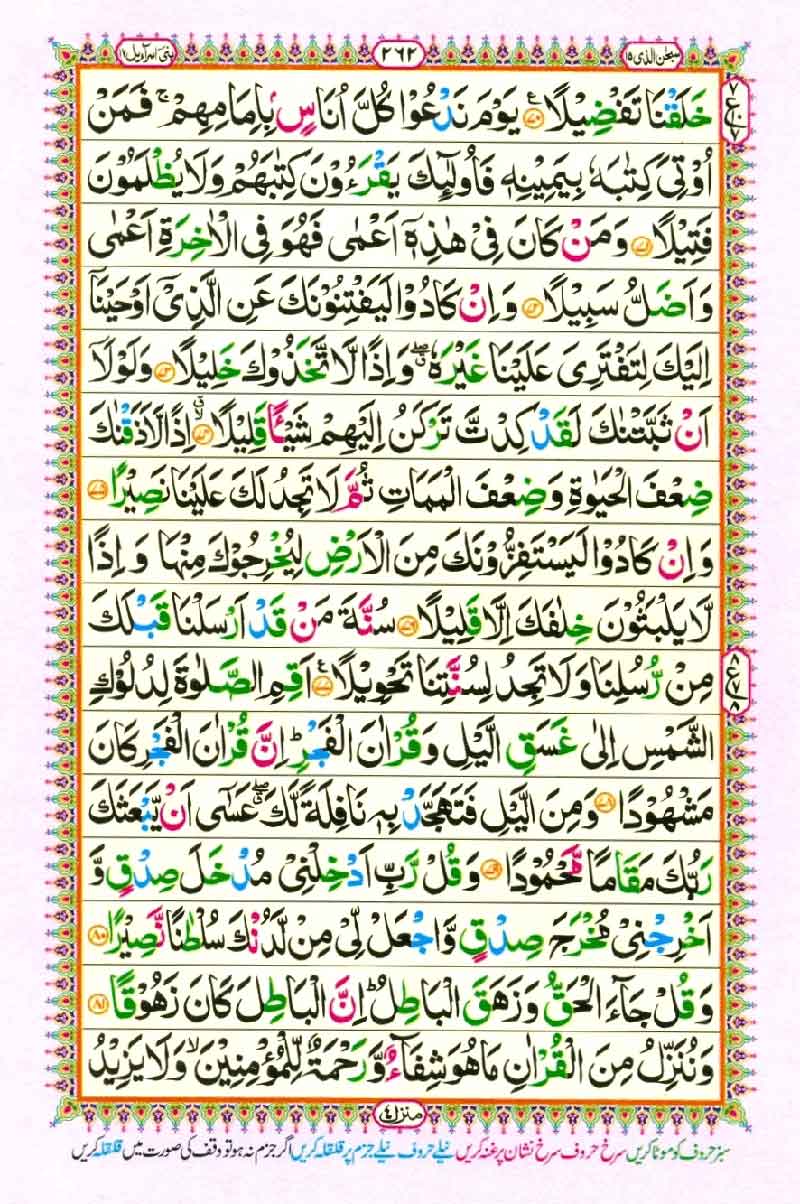 سبحن الذی ۱۵ ۲۶۲ بنی اسرآءیل ۱۷
خَلَقْنَا تَفْضِیْلًا ۷۰ یَوْمَ نَدْعُوْا كُلَّ اُنَاسٍۭ بِاِمَامِهِمْ ۚ فَمَنْ
اُوْتِیَ كِتٰبَهٗ بِیَمِیْنِهٖ فَاُولٰٓىِٕكَ یَقْرَءُوْنَ كِتٰبَهُمْ وَلَا یُظْلَمُوْنَ
فَتِیْلًا ۷۱ وَمَنْ كَانَ فِیْ هٰذِهٖۤ اَعْمٰی فَهُوَ فِی الْاٰخِرَةِ اَعْمٰی
وَاَضَلُّ سَبِیْلًا ۷۲ وَاِنْ كَادُوْا لَیَفْتِنُوْنَكَ عَنِ الَّذِیْۤ اَوْحَیْنَاۤ
اِلَیْكَ لِتَفْتَرِیَ عَلَیْنَا غَیْرَهٗ ۖۗ وَاِذًا لَّاتَّخَذُوْكَ خَلِیْلًا ۷۳ وَلَوْلَاۤ
اَنْ ثَبَّتْنٰكَ لَقَدْ كِدْتَّ تَرْكَنُ اِلَیْهِمْ شَیْـًٔا قَلِیْلًا ۷۴ ۙ اِذًا لَّاَذَقْنٰكَ
ضِعْفَ الْحَیٰوةِ وَضِعْفَ الْمَمَاتِ ثُمَّ لَا تَجِدُ لَكَ عَلَیْنَا نَصِیْرًا ۷۵
وَاِنْ كَادُوْا لَیَسْتَفِزُّوْنَكَ مِنَ الْاَرْضِ لِیُخْرِجُوْكَ مِنْهَا وَاِذًا
لَّا یَلْبَثُوْنَ خِلٰفَكَ اِلَّا قَلِیْلًا ۷۶ سُنَّةَ مَنْ قَدْ اَرْسَلْنَا قَبْلَكَ
مِنْ رُّسُلِنَا وَلَا تَجِدُ لِسُنَّتِنَا تَحْوِیْلًا ۷۷ اَقِمِ الصَّلٰوةَ لِدُلُوْكِ
الشَّمْسِ اِلٰی غَسَقِ الَّیْلِ وَقُرْاٰنَ الْفَجْرِ ؕ اِنَّ قُرْاٰنَ الْفَجْرِ كَانَ
مَشْهُوْدًا ۷۸ وَمِنَ الَّیْلِ فَتَهَجَّدْ بِهٖ نَافِلَةً لَّكَ ۖۗ عَسٰۤی اَنْ یَّبْعَثَكَ
رَبُّكَ مَقَامًا مَّحْمُوْدًا ۷۹ وَقُلْ رَّبِّ اَدْخِلْنِیْ مُدْخَلَ صِدْقٍ وَّ
اَخْرِجْنِیْ مُخْرَجَ صِدْقٍ وَّاجْعَلْ لِّیْ مِنْ لَّدُنْكَ سُلْطٰنًا نَّصِیْرًا ۸۰
وَقُلْ جَآءَ الْحَقُّ وَزَهَقَ الْبَاطِلُ ؕ اِنَّ الْبَاطِلَ كَانَ زَهُوْقًا ۸۱
وَنُنَزِّلُ مِنَ الْقُرْاٰنِ مَا هُوَ شِفَآءٌ وَّرَحْمَةٌ لِّلْمُؤْمِنِیْنَ ۙ وَلَا یَزِیْدُ
منزل ۴
سبز حروف کو موٹا کریں سرخ حروف سرخ نشان پر غنہ کریں نیلے حروف نیلے جزم پر قلقلہ کریں اگر جزم نہ ہو تو وقف کی صورت میں قلقلہ کریں